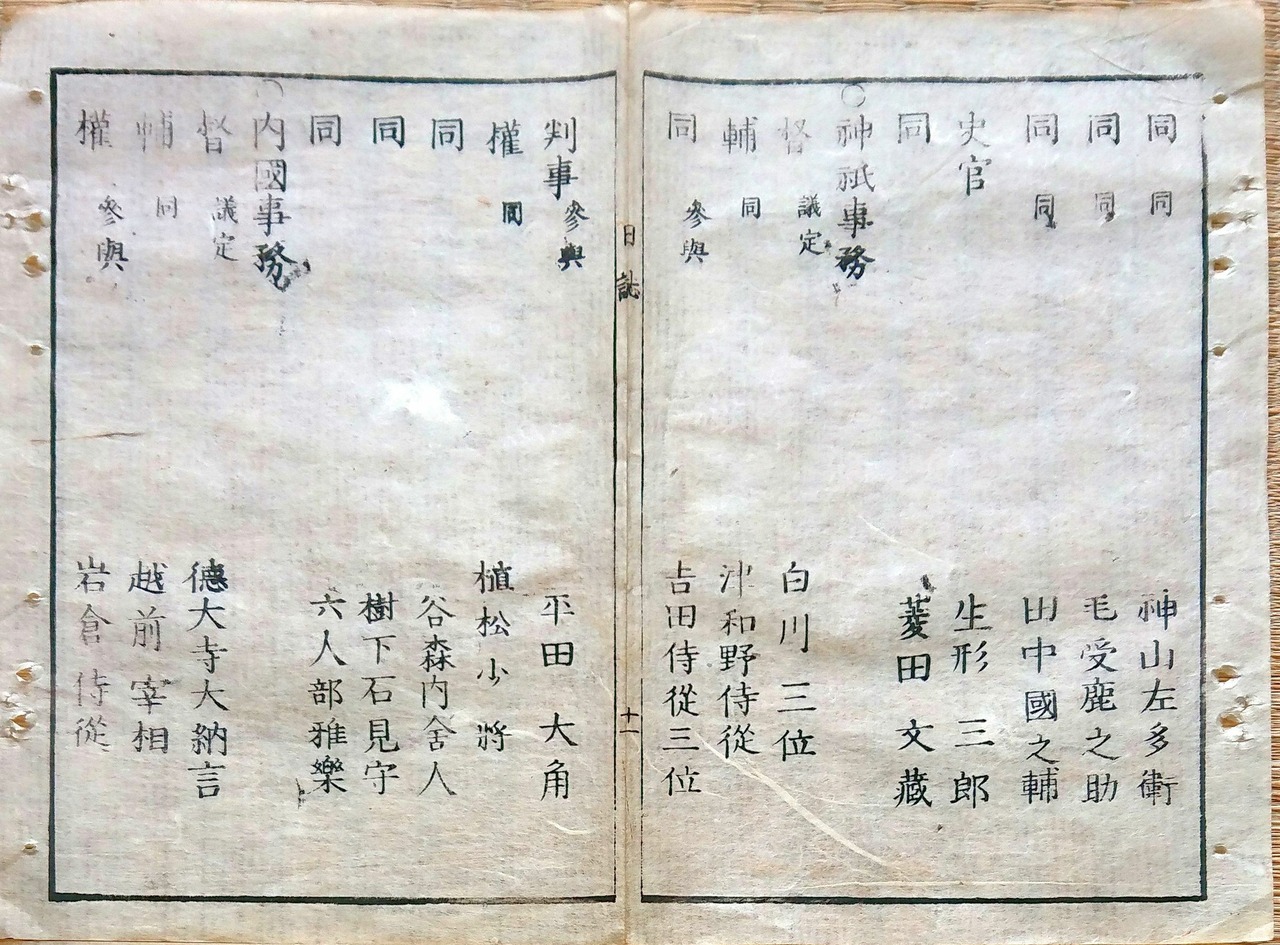 同 同 神山左多衛
同 同 毛受鹿之助
同 同 田中國之輔
史官 生形三郎
同 菱田文藏
○神祇事務
督 議定 白川三位
輔 同 津和野侍從
同 參與 吉田侍從三位
日誌 十一
判事 參與 平田大角
權 同 植松少將
同 谷森内舍人
同 樹下石見守
同 六人部雅樂
○内國事務
督 議定 德大寺大納言
輔 同 越前宰相
權 參與 岩倉侍從